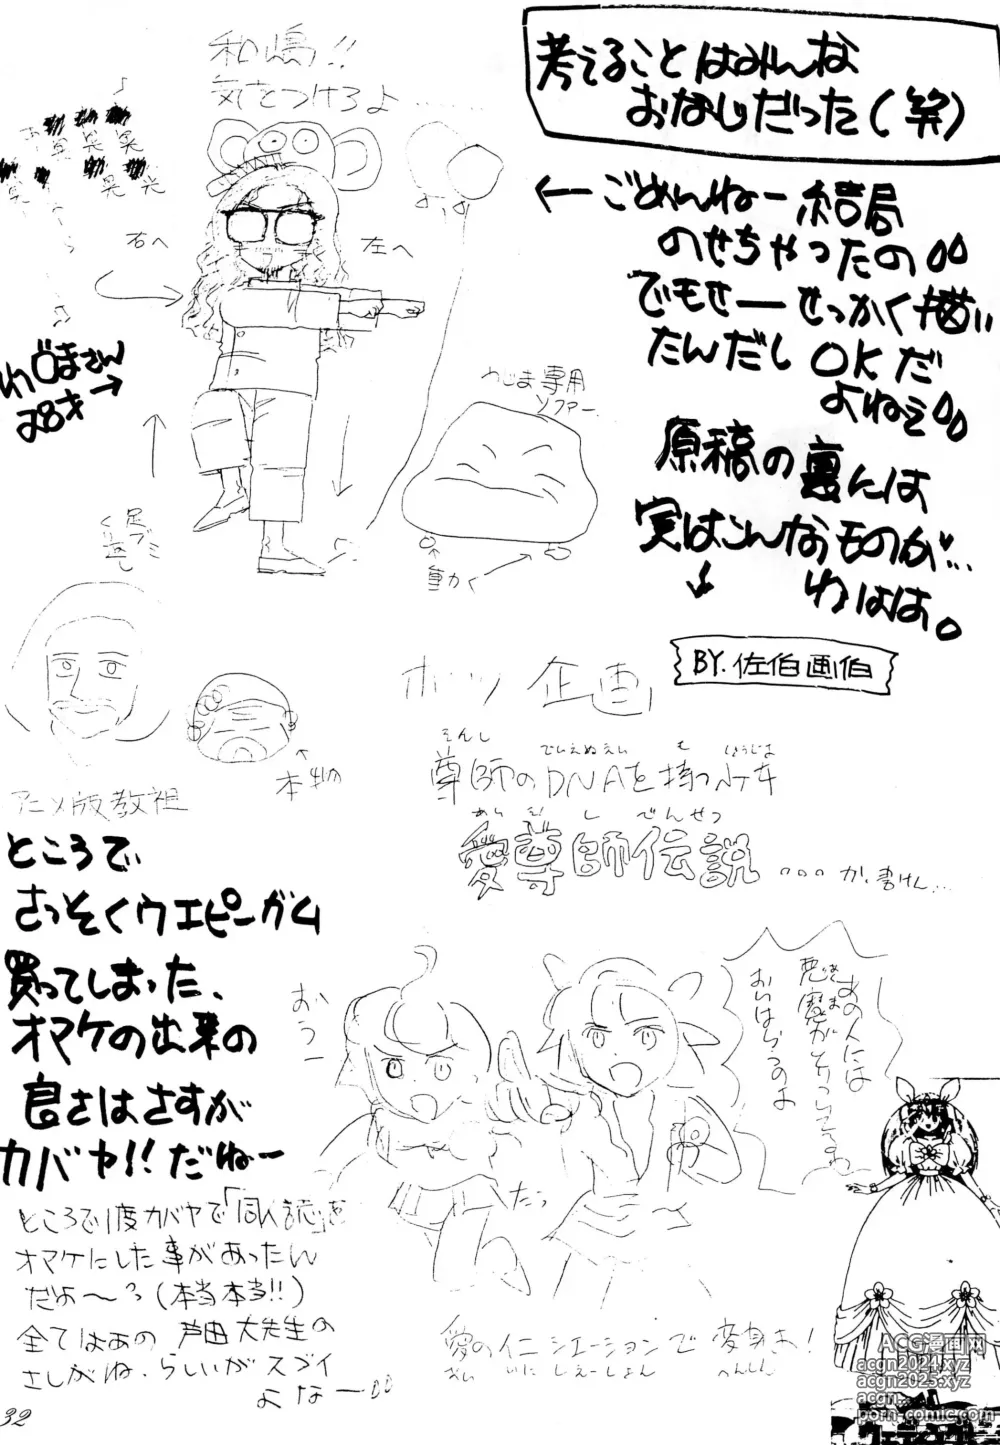 考えることはみんな
おなじだった(笑)
←ごめんねー結局
のせちゃったの
でもせーせっかく描い
たんだし OKだ
よねえ
原稿の裏には
実はこんなものが…
わはは。
BY.佐伯画伯
和嶋!!
気をつけろよ……
右へ
左へ
わじまさん
28才→
わじま専用
ソファー
動かく
足ブミ
アニメ版教祖
本物
ボツ企画
そんし でぃえぬえい も しょうじょ
尊師のDNAを持つ少女
あい そん し でんせつ
愛尊師伝説
…が、書けん…
ところで
さっそくウエピーガム
買ってしまった、
オマケの出来の
良さはさすが
カバヤ!!だねー
ところで1度カバヤで「同人誌」を
オマケにした事があったん
だよ〜?(本当本当!!)
全てはあの 芦田大先生の
さしがね、らしいがスゴイ
よなー
おうー
たっ
あの人には
悪魔がとりついてるわ
おいはらうのよ
愛のイニシエーションで変身よ!
あい いに しえーしょん へんしん
ウェディングピーチ
ACG漫画网
acgn2024.xyz
acgn2025.xyz
porn-comic.com
32